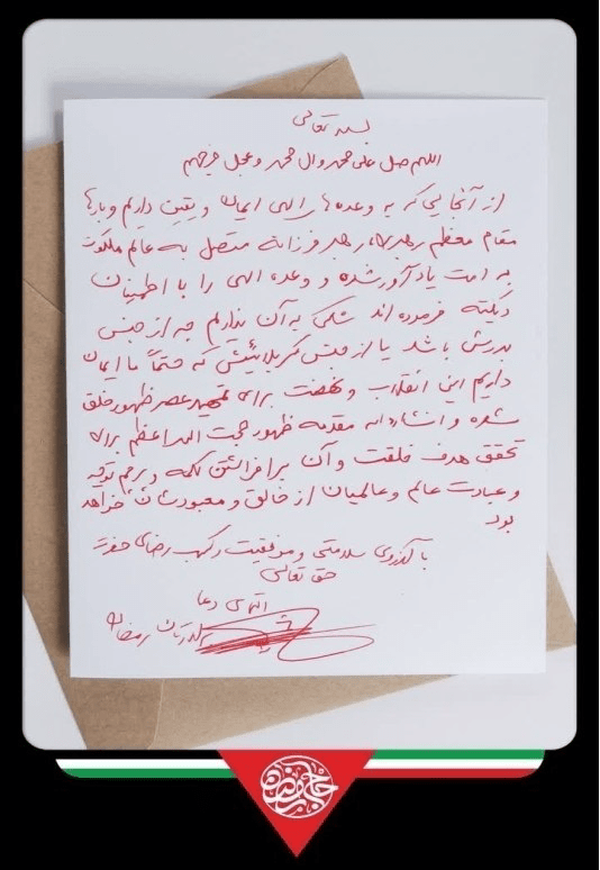 بسمه تعالی
اللهم صل علی محمد وال محمد وعجل فرجهم
از آنجایی که به وعده های الهی ایمان و یقین داریم و بارها
مقام معظم رهبری، رهبر فرزانه متصل به عالم ملکوت
به امت یادآور شده و وعده الهی را با اطمینان
دیکته فرموده اند شکی به آن نداریم چه از جنس
بدرش باشد یا از جنس کربلائیش که حتماً ما ایمان
داریم این انقلاب و نهضت برای تمهید عصر ظهور خلق
شده و انشاءاله مقدمه ظهور حجت اله اعظم برای
تحقق هدف خلقت و آن برافراشتن کلمه و پرچم توحید
و عبادت عالم و عالمیان از خالق و معبودشان خواهد
بود
با آرزوی سلامتی و موفقیت و کسب رضای حضرت
حق تعالی
التماس دعا
رمضان
حاج رمضان